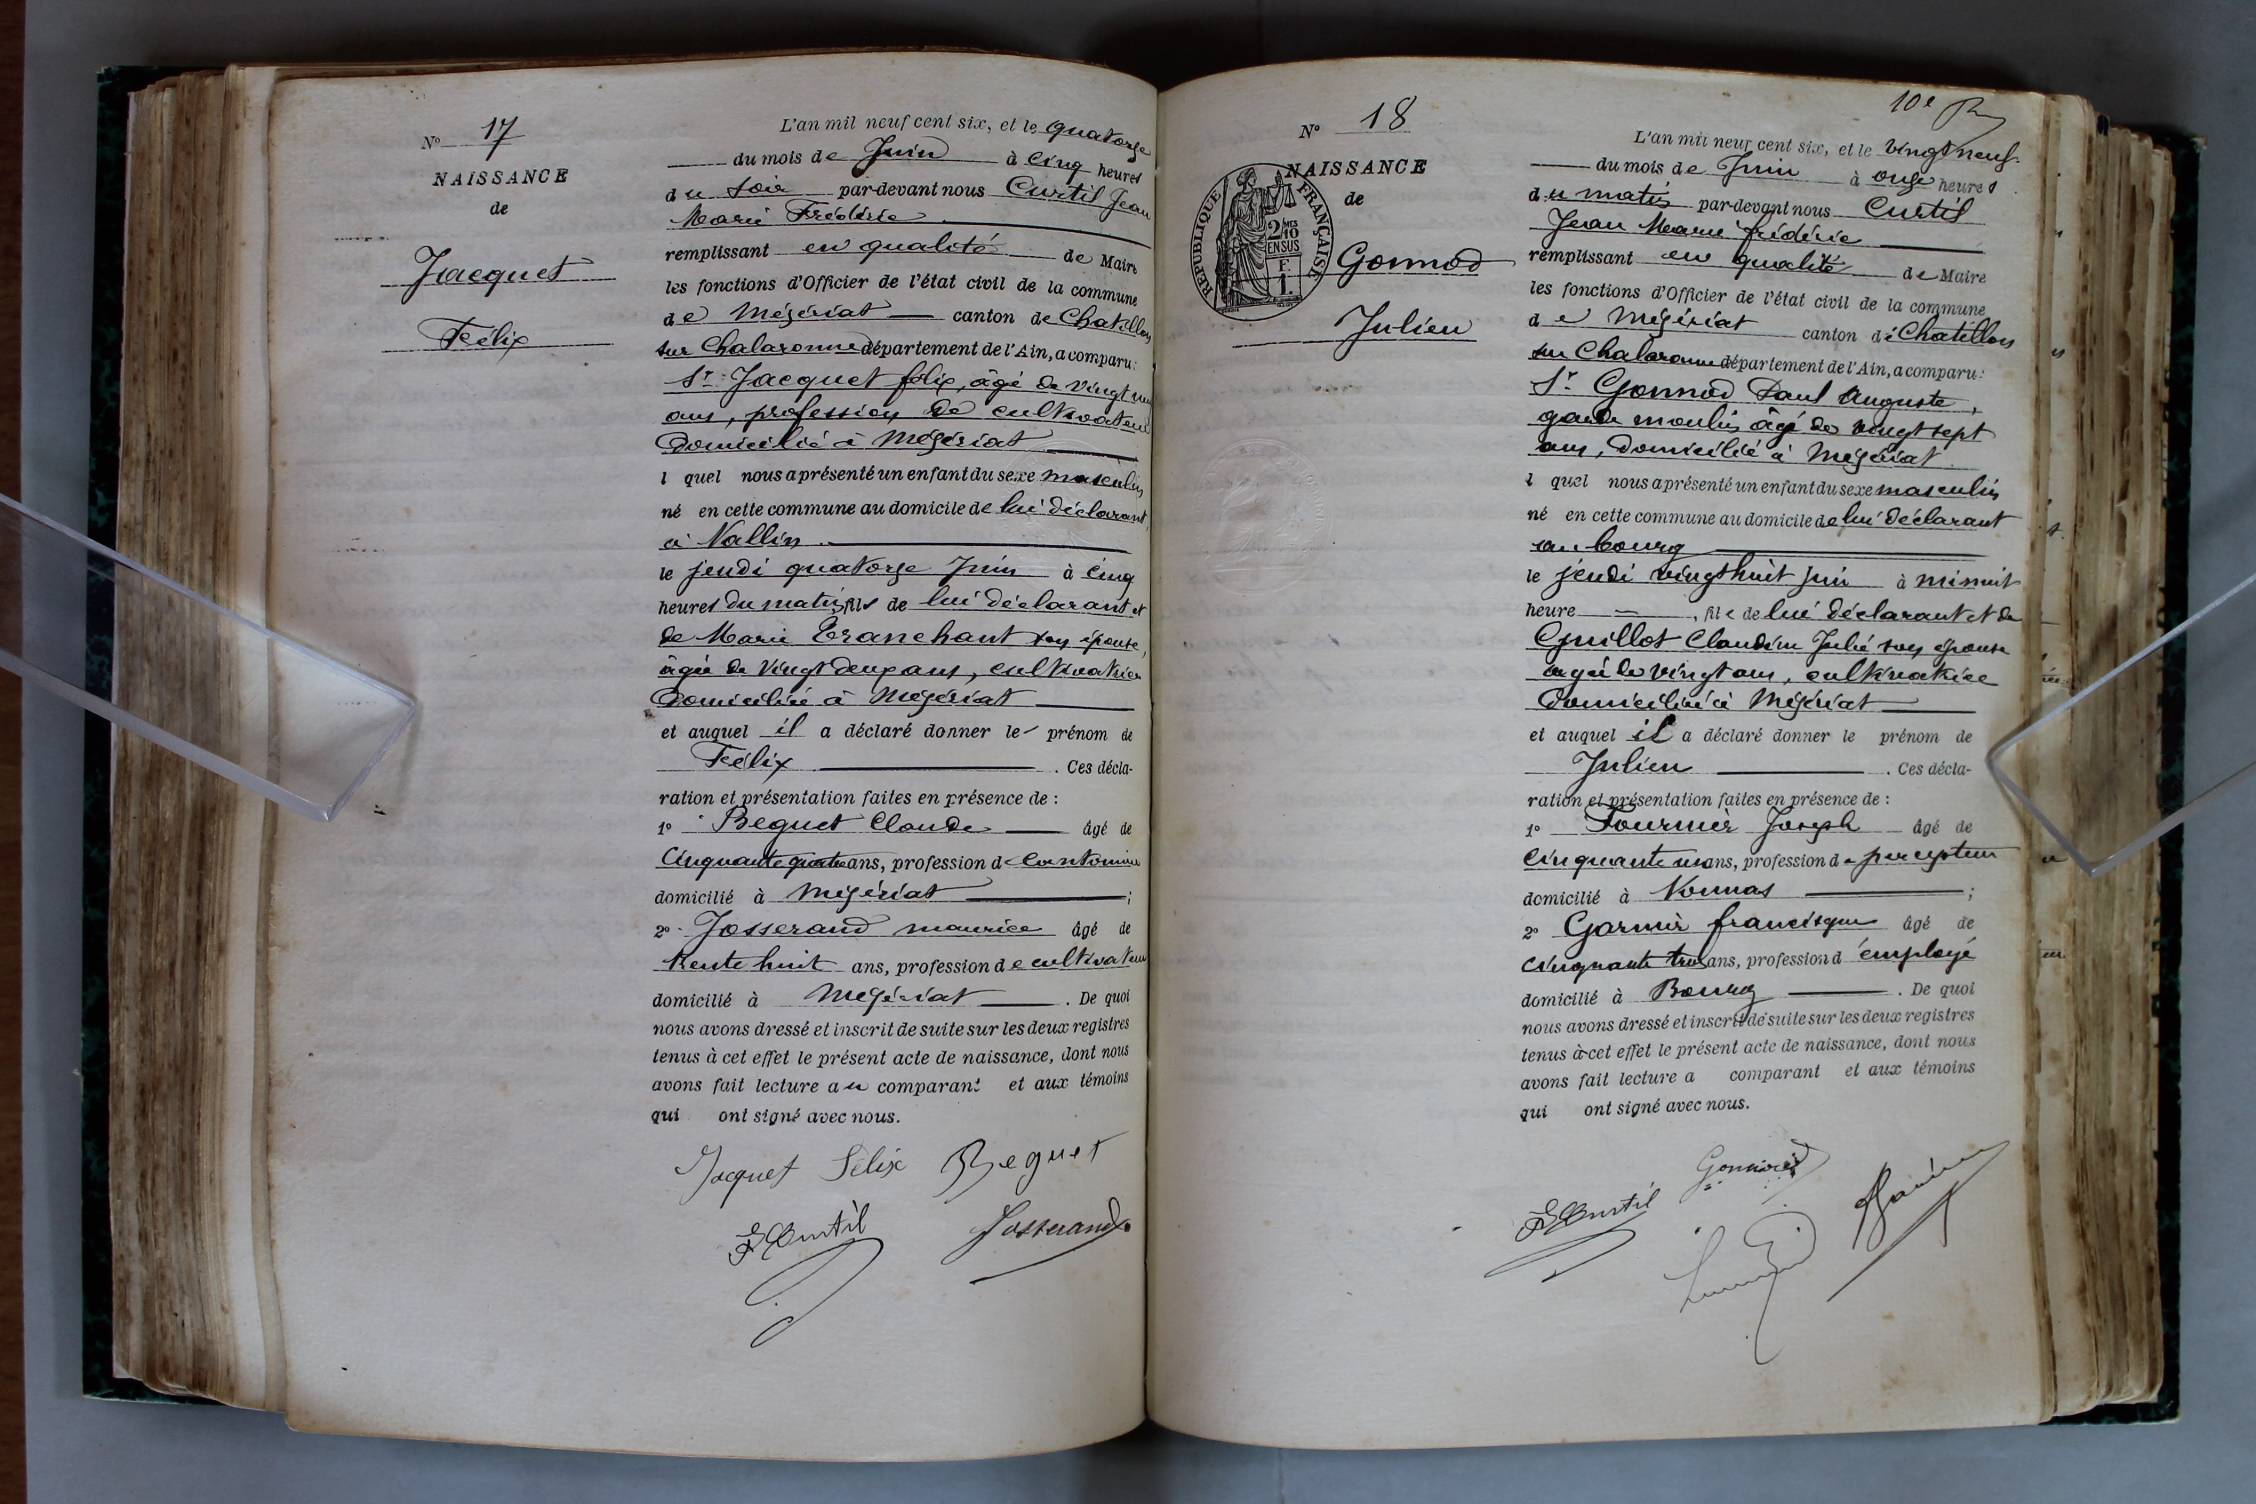 N° 17
NAISSANCE
de
Jacquet
Félix
L'an mil neuf cent six, et le quatorze
du mois de Juin à cinq heures
du soir par-devant nous Curtil Jean
Marie Frédéric
remplissant en qualité de Maire
les fonctions d'Officier de l'état civil de la commune
de Mézériat canton de Chatillon
sur Chalaronne département de l'Ain, a comparu:
Sr Jacquet félix, âgé de vingt un
ans, profession de cultivateur
domicilié à Mézériat
l quel nous a présenté un enfant du sexe masculin
né en cette commune au domicile de lui déclarant,
à Vallin
le jeudi quatorze Juin à cinq
heures du matin, fils de lui déclarant et
de Marie Tranchant son épouse,
âgée de vingt deux ans, cultivatrice
domiciliée à Mézériat
et auquel il a déclaré donner le prénom de
Félix . Ces décla-
ration et présentation faites en présence de :
1° Beguet Claude âgé de
cinquante quatre ans, profession de cantonnier
domicilié à Mézériat ;
2° Josserand maurice âgé de
trente huit ans, profession de cultivateur
domicilié à Mézériat . De quoi
nous avons dressé et inscrit de suite sur les deux registres
tenus à cet effet le présent acte de naissance, dont nous
avons fait lecture au comparant et aux témoins
qui ont signé avec nous.
Jacquet Félix Beguet
Curtil Josserand
10e
N° 18
NAISSANCE
de
RÉPUBLIQUE FRANÇAISE
2 MES
10
EN SUS
F.
1.
Gonnod
Julien
L'an mil neuf cent six, et le vingt neuf
du mois de Juin à onze heures
du matin par-devant nous Curtil
Jean Marie frédéric
remplissant en qualité de Maire
les fonctions d'Officier de l'état civil de la commune
de Mézériat canton de Chatillon
sur Chalaronne département de l'Ain, a comparu:
Sr Gonnod Paul Auguste,
garde moulin âgé de vingt sept
ans, domicilié à Mézériat
l quel nous a présenté un enfant du sexe masculin
né en cette commune au domicile de lui déclarant
au bourg
le jeudi vingt huit juin à minuit
heure , fils de lui déclarant et de
Guillot Claudine Julie son épouse
agée de vingt ans, cultivatrice
domiciliée à Mézériat
et auquel il a déclaré donner le prénom de
Julien . Ces décla-
ration et présentation faites en présence de :
1° Fournier Joseph âgé de
cinquante un ans, profession de percepteur
domicilié à Vonnas ;
2° Garnier francisque âgé de
cinquante trois ans, profession d employé
domicilié à Bourg . De quoi
nous avons dressé et inscrit de suite sur les deux registres
tenus à cet effet le présent acte de naissance, dont nous
avons fait lecture a comparant et aux témoins
qui ont signé avec nous.
Gonnod
Curtil